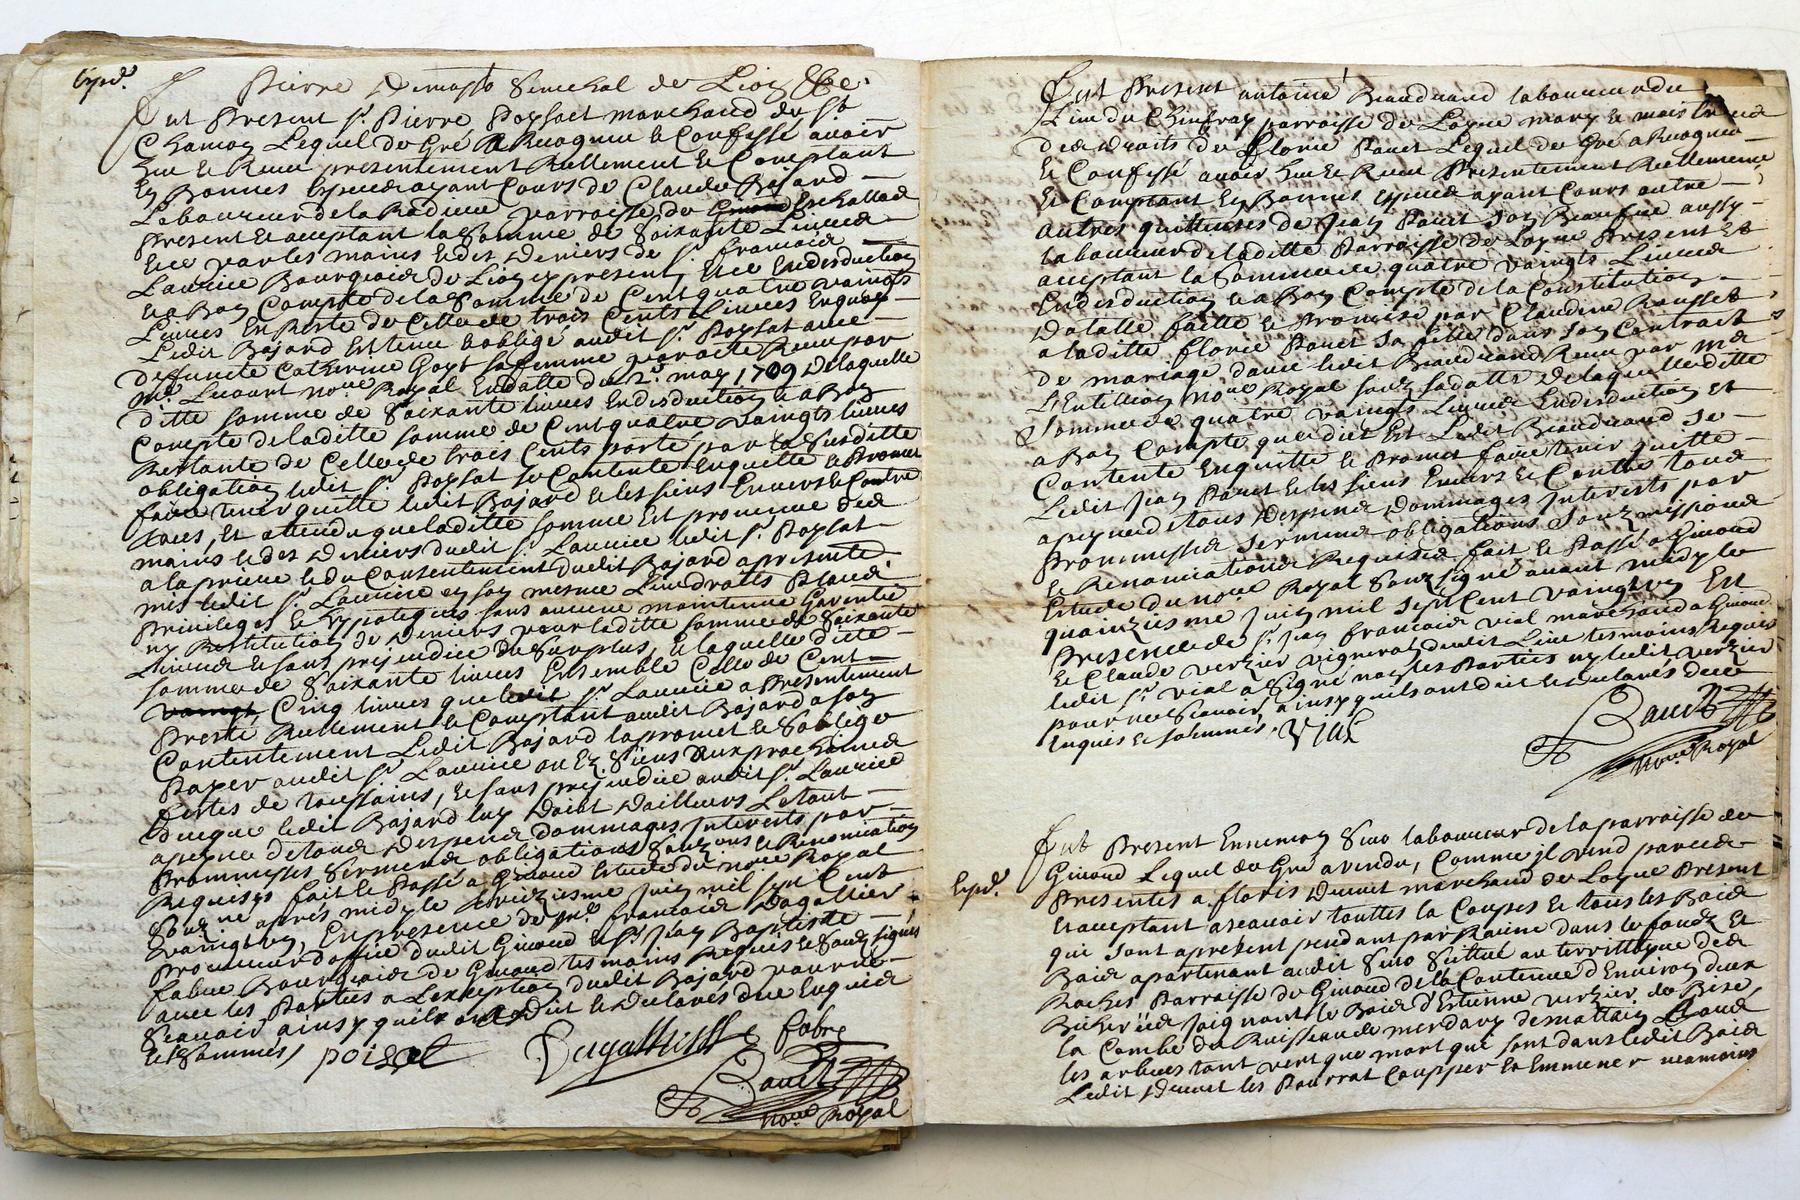 Expéd.
Pierre Demasso Senechal de Lion &c.
Fut Present Sr. Pierre Poysat marchand de St
Chamon Lequel de Gré A Recogneu et Confessé avoir
heu et Receu presentement Reellement et Comptant
En Bonnes Especes ayant Cours de Claude Bajard
Laboureur de la parroisse de Eschallas
present et acceptant la Somme de Soixante Livres
et ce par les mains et des Deniers de Sr. francois
Laurice Bourgeois de Lion y present, et ce En desduction
et a Bon Compte de la Somme de Cent quatre vaingts
Livres En Reste de Celle de trois Cents Livres En quoy
Ledit Bajard Est tenu et obligé audit Sr. Poysat avec
deffuncte Catherine Goyt sa femme par acte Receu par
Me. Lecourt nore. Royal En datte du 2e. may 1709 De laquelle
ditte somme de Soixante livres En desduction et a Bon
Compte de laditte somme de Cent quatre vaingts livres
Restante de Celle de trois Cents porté par la Susditte
obligation ledit Sr. Poysat Se Contente En quitte et Promet
faire tenir quitte ledit Bajard et les siens Envers et Contre
tous, Et attendu que laditte somme Est provenue des
mains et des Deniers dudit Sr. Laurice ledit Sr. Poysat
a la priere et du Consentement dudit Bajard a presente
mis ledit Sr. Laurice en son mesme Lieu droits Place
Privileges et hypoteques sans aucune maintenue Garentie
ny Restitution de Deniers pour laditte somme de Soixante
Livres et sans prejudice du Surplus, a laquelle ditte
somme de Soixante livres Ensemble Celle de Cent
vaingt Cinq livres que ledit Sr. Laurice a Presentement
Presté Reellement et Comptant audit Bajard a son
Contentement Ledit Bajard la promet et S'oblige
Payer audit Sr. Laurice ou Es Siens Aux prochaines
festes de toussaints, et sans prejudice audit Sr. Laurice
de ce que ledit Bajard luy Doibt D'ailleurs Le tout
a peyne de tous Despens dommages Interests par
Promesses Serments obligations Soubzmissions et Renonciation
Requises fait et Passé a Givord Estude du nore. Royal
Soubzne apres midy le Juin mil Sept Cent
vaingt un, En presence de Me. francois Dagallier
procureur d'office dudit Givord et Sr. Jean Baptiste
fabre Bourgeois de Givord tesmoins Requis et Soubzsignés
avec les Parties a L'exception dudit Bajard pour ne
Scavoir ainsy quil a dit et Declaré de ce Enquis
et Sommés / poisat
Dagallier fabre
nore. Royal
Fut Present antoine Beaudrand laboureur du
Lieu du parroisse de Loyre mary et maistre
des droits de Florie Pauet Lequel de Gré a Recogneu
et Confessé avoir heu et Receu Presentement Reellement
et Comptant En Bonnes Especes ayant Cours outre
autres quittances de Jean Pauet Son Beaufrere aussy
laboureur de laditte Parroisse de Loyre Present et
acceptant la Somme de quatre vaingts Livres
En desduction et a Bon Compte de la Constitution
Dotalle faitte et Promise par Claudine Rousset
a laditte florie Pauet Sa fille dans Son Contrait
de mariage avec ledit Beaudrand Receu par Me
L'Entillon nore. Royal souz sa datte De laquelle ditte
Somme de quatre vaingts Livres En desduction et
a Bon Compte que dict Est Ledit Beaudrand Se
Contente En quitte et Promet faire tenir quitte
Ledit Jean Pauet et les siens Envers et Contre tous
a peyne de tous Despens Dommages Interests par
Promesses Serments obligations Soubzmissions
et Renonciations Requises fait et Passé a Givord
Estude du nore. Royal Soubzsigné avant midy le
quainziesme Juin mil Sept Cent vaingt un En
Presence de Sr. Jean francois vial marchand a Givord
et Claude verzier vigneron dudit Lieu tesmoins Requis
ledit Sr. vial a Signé non les Parties ny ledit verzier
pour ne Scavoir ainsy quils ont dit et declarés de ce
Enquis et Sommés. Vial
nore. Royal
Expéd.
Fut Present Ennemon Sino laboureur de la parroisse de
Givord Lequel de Gré a vendu, Comme il vend par ces
Presentes a floris Durret marchand de Loyre Present
Et acceptant a scavoir touttes la Coupes et tous les Bois
qui sont a present pendant par Racine dans le fondz et
Bois apartenant audit Sino Scittué au territoyre des
Roches Parroisse de Givord de la Contenue d'Environ deux
Bicherées Joignant le Bois d'Estienne verzier de Bise,
la Combe du Ruisseau de merdary de mattain
les arbres tant vert que mort qui sont dans ledit Bois
Ledit Durret les Pourrat Coupper et Emmener neamoins